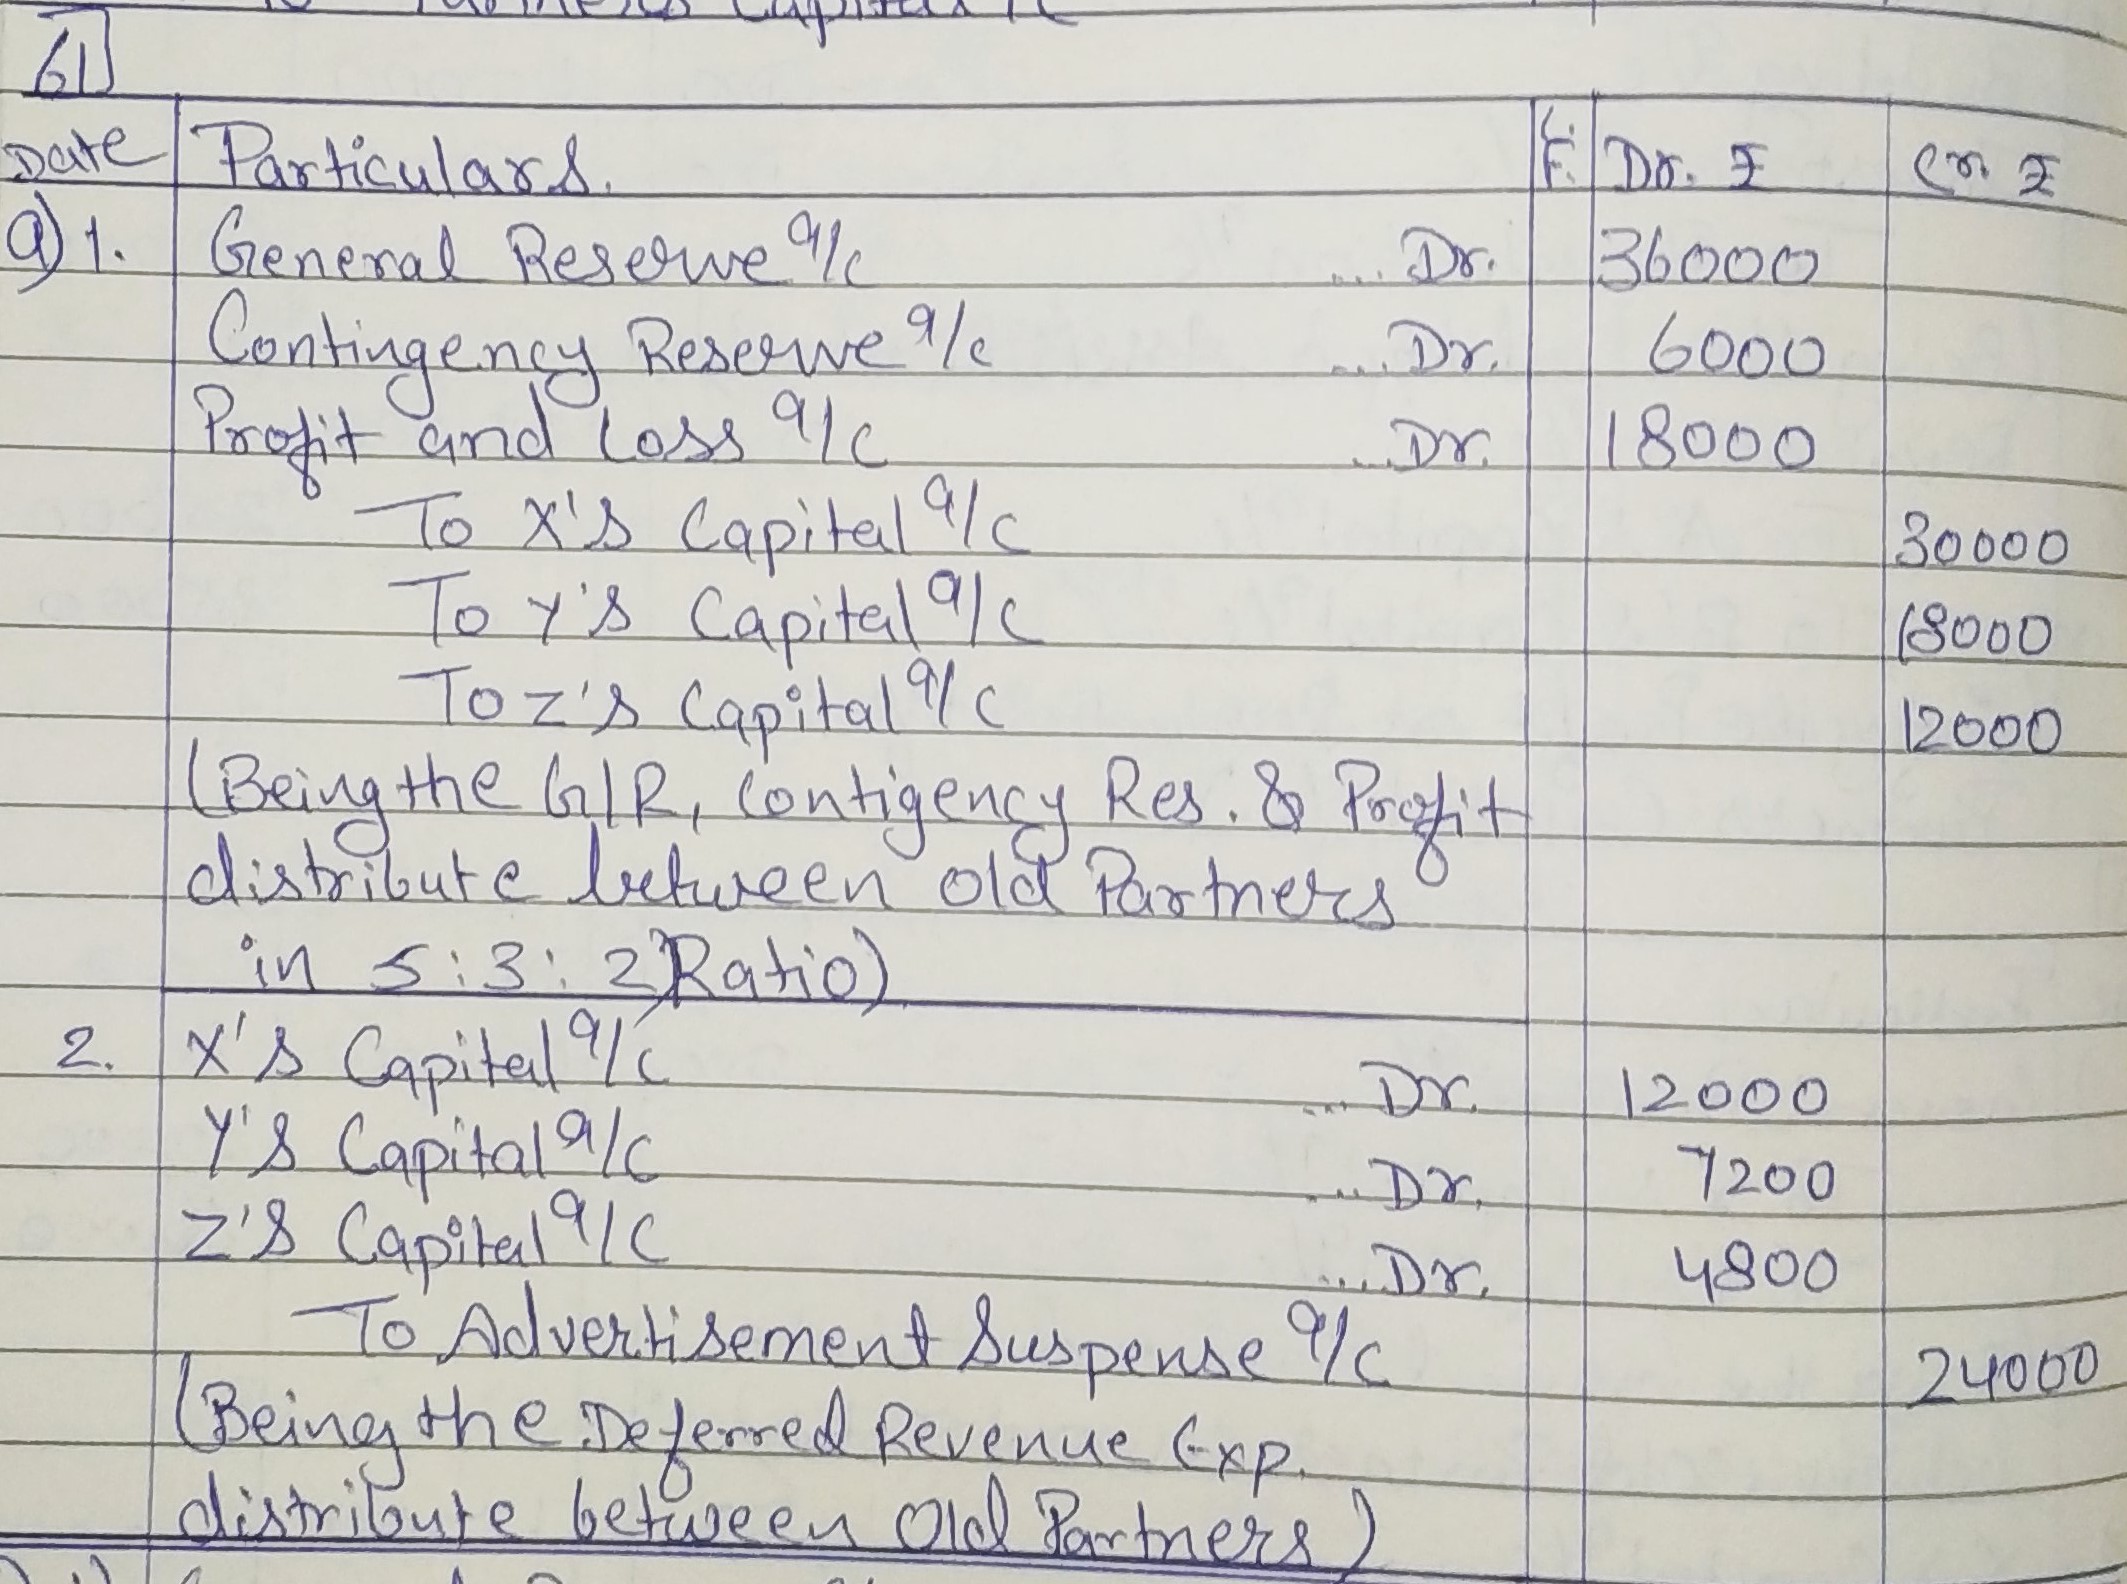 61
Date Particulars. L.F. Dr. ₹ Cr. ₹
a) 1. General Reserve a/c ... Dr. 36000
Contingency Reserve a/c ... Dr. 6000
Profit and Loss a/c ... Dr. 18000
To X's Capital a/c 30000
To Y's Capital a/c 18000
To Z's Capital a/c 12000
(Being the G/R, Contigency Res. & Profit
distribute between old Partners
in 5:3:2 Ratio)
2. X's Capital a/c ... Dr. 12000
Y's Capital a/c ... Dr. 7200
Z's Capital a/c ... Dr. 4800
To Advertisement Suspense a/c 24000
(Being the Deferred Revenue Exp.
distribute between Old Partners)